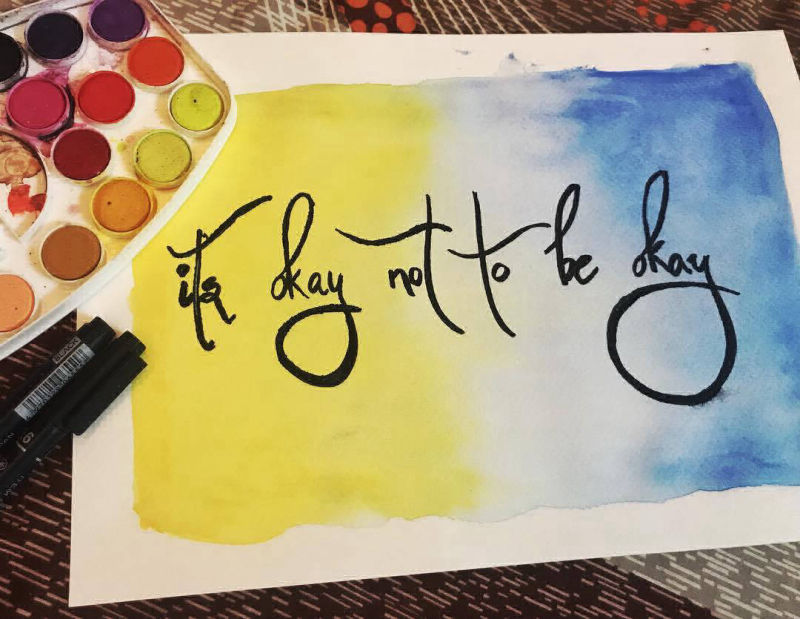 its okay not to be okay